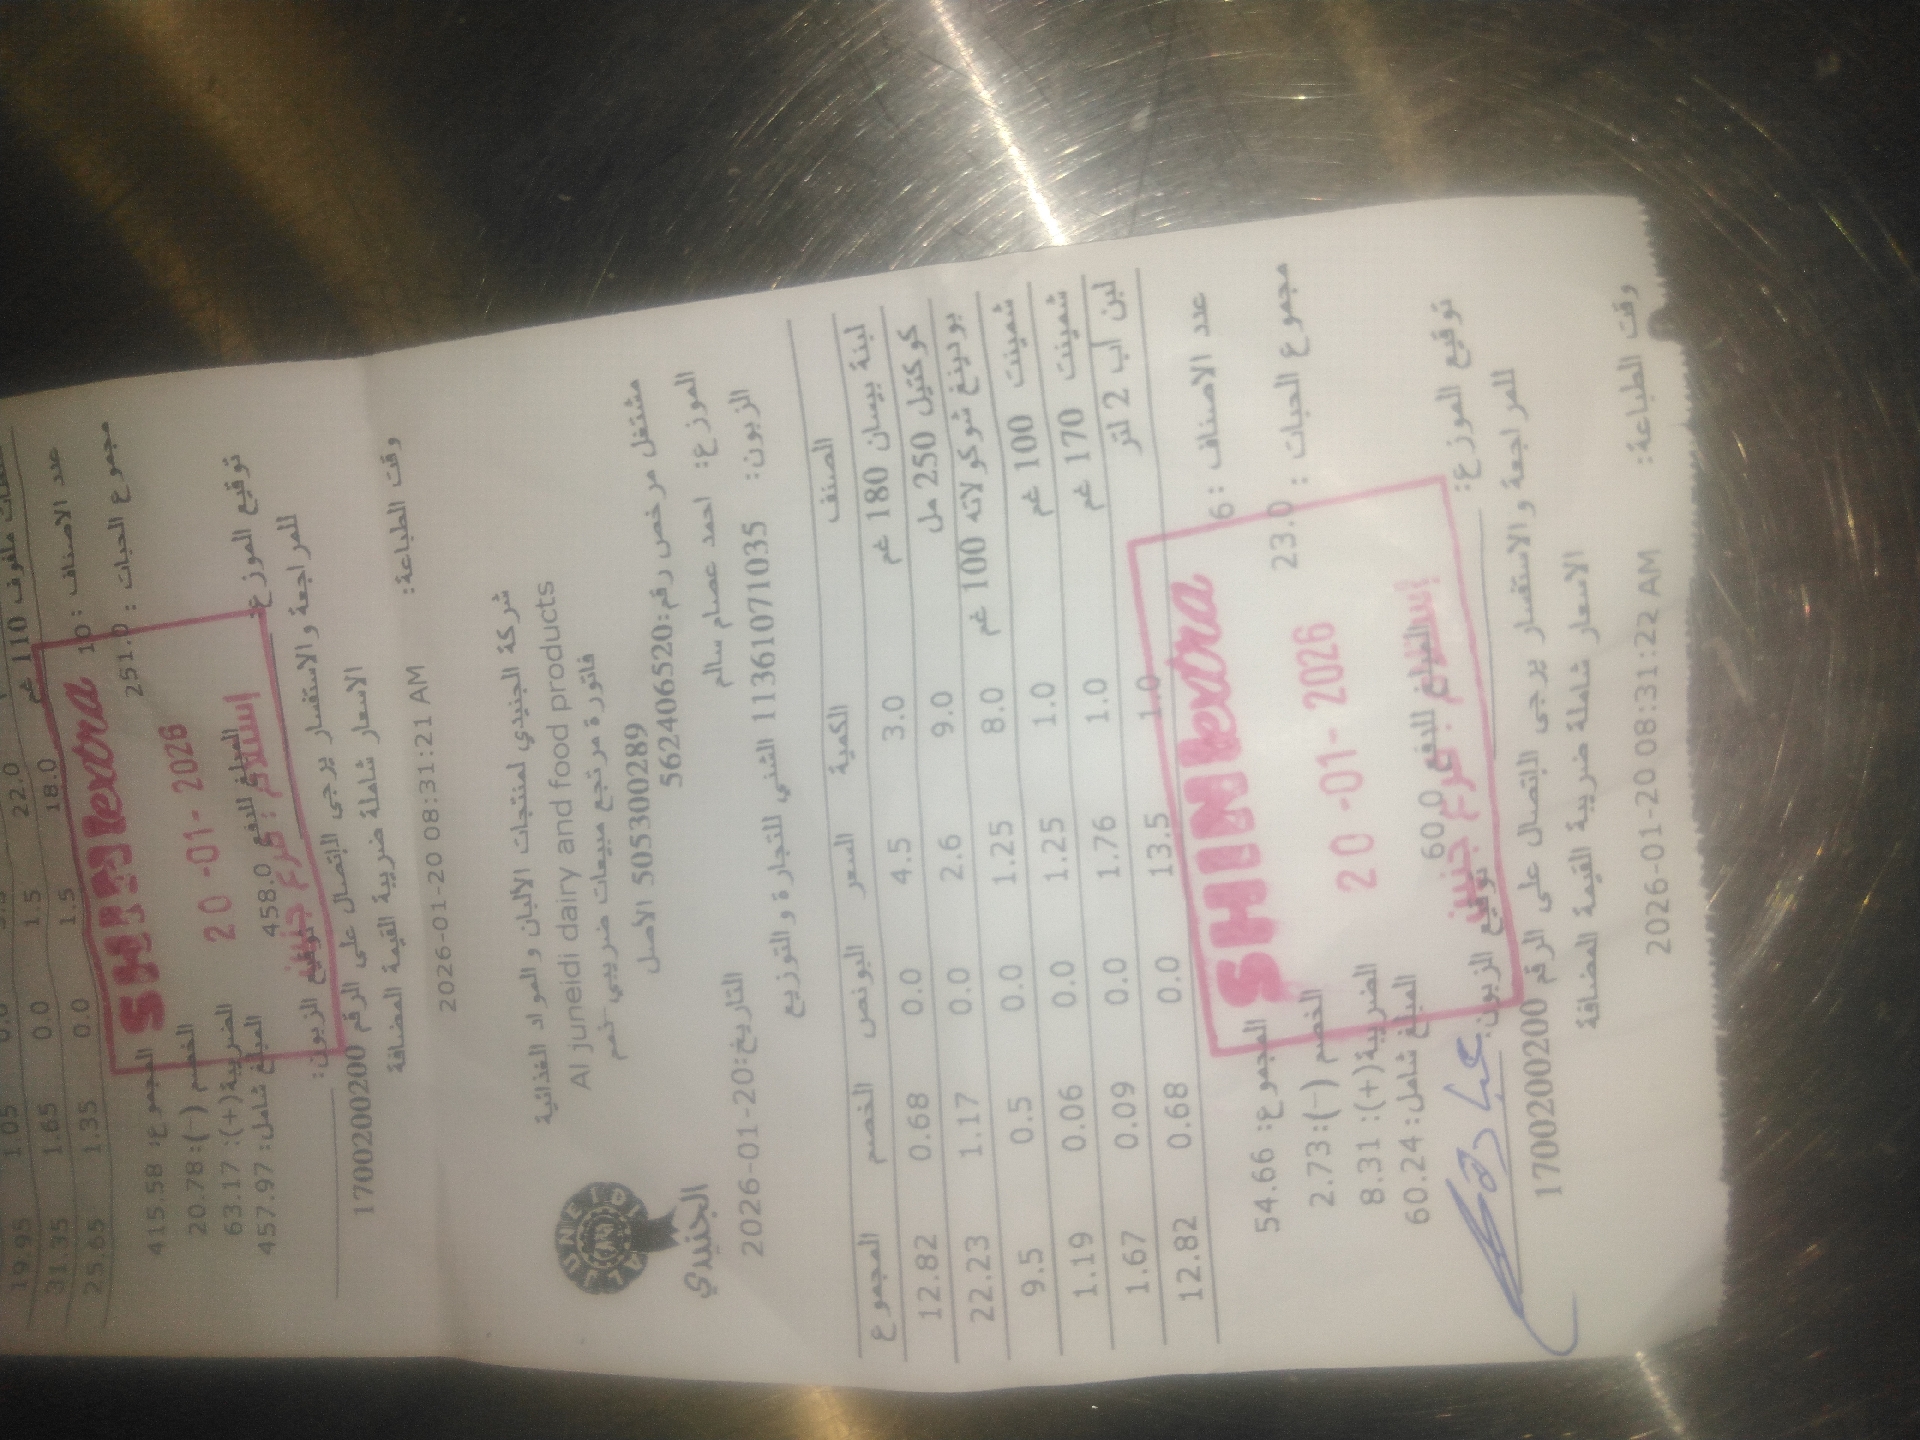 غم 110 ملفوف
22.0
1.05 19.95
18.0 1.5 0.0 1.65 31.35
1.5 0.0 1.35 25.65
عدد الاصناف : 10
مجموع الحبات : 251.0
SHINI extra
20 -01- 2026
إستلام : فرع جنين
المجموع: 415.58
الخصم (-): 20.78
الضريبة(+): 63.17
المبلغ شامل: 457.97
المبلغ للدفع 458.0
توقيع الموزع:
توقيع الزبون:
للمراجعة والاستفسار يرجى الإتصال على الرقم 1700200200
الاسعار شاملة ضريبة القيمة المضافة
وقت الطباعة:
2026-01-20 08:31:21 AM
شركة الجنيدي لمنتجات الألبان و المواد الغذائية
Al juneidi dairy and food products
فاتورة مرتجع مبيعات ضريبي-خصم
AL JUNEIDI
الجنيدي
مشتغل مرخص رقم:562406520
505300289 الأصل
الموزع: احمد عصام سالم
الزبون: 1136107103​5 الشني للتجارة و التوزيع
التاريخ:2026-01-20
الصنف الكمية السعر البونص الخصم المجموع
لبنة بيسان 180 غم 3.0 4.5 0.0 0.68 12.82
كوكتيل 250 مل 9.0 2.6 0.0 1.17 22.23
بودينغ شوكولاته 100 غم 8.0 1.25 0.0 0.5 9.5
شمينت 100 غم 1.0 1.25 0.0 0.06 1.19
شمينت 170 غم 1.0 1.76 0.0 0.09 1.67
لبن اب 2 لتر 1.0 13.5 0.0 0.68 12.82
عدد الاصناف : 6
مجموع الحبات : 23.0
SHINI extra
20 -01- 2026
إستلام : فرع جنين
المجموع: 54.66
الخصم (-): 2.73
الضريبة(+): 8.31
المبلغ شامل: 60.24
المبلغ للدفع 60.0
توقيع الموزع:
توقيع الزبون:
للمراجعة والاستفسار يرجى الإتصال على الرقم 1700200200
الاسعار شاملة ضريبة القيمة المضافة
وقت الطباعة:
2026-01-20 08:31:22 AM